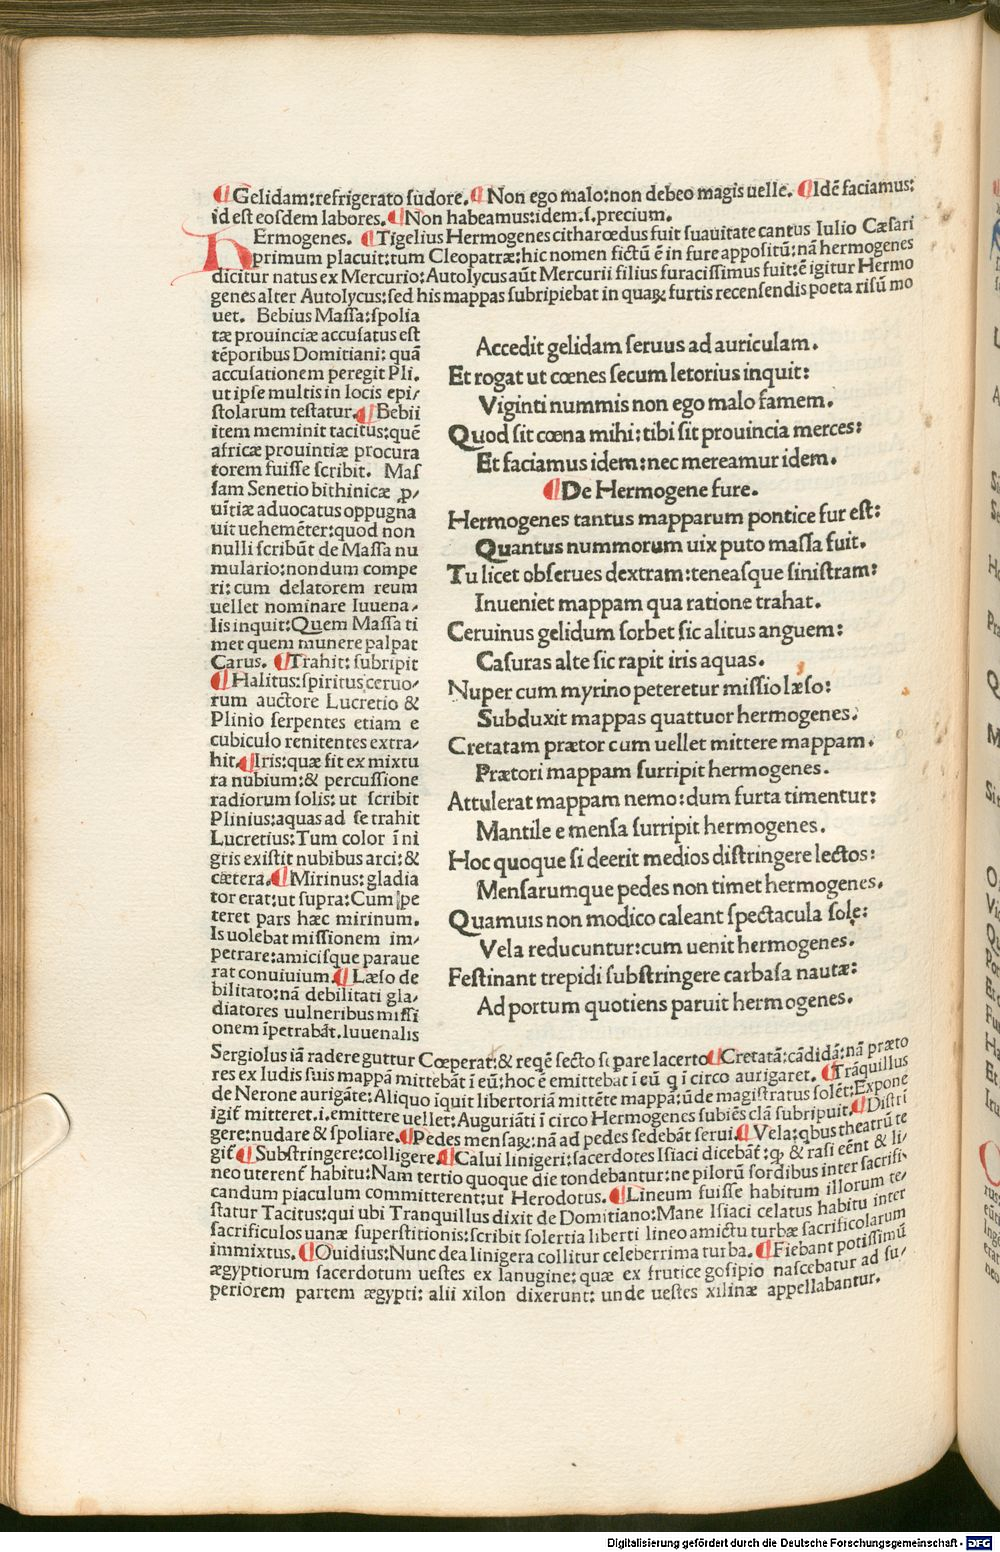 ¶Gelidam:refrigerato sudore.¶Non ego malo:non debeo magis uelle.¶Idē faciamus:
id est eosdem labores.¶Non habeamus:idem.s.precium.
HErmogenes. ¶Tigelius Hermogenes citharœdus fuit suauitate cantus Iulio Cæsari
primum placuit:tum Cleopatræ:hic nomen fictū ē in fure appositū:nā hermogenes
dicitur natus ex Mercurio:Autolycus aūt Mercurii filius furacissimus fuit:ē igitur Hermo
genes alter Autolycus:sed his mappas subripiebat in quaꝝ furtis recensendis poeta risū mo
uet. Bebius Massa:spolia
tæ prouinciæ accusatus est
tēporibus Domitiani: quā
accusationem peregit Pli.
ut ipse multis in locis epi/
stolarum testatur.¶Bebii
item meminit tacitus:quē
africæ prouintiæ procura
torem fuisse scribit. Mas
sam Senetio bithinicæ ꝓ/
uītiæ aduocatus oppugna
uit uehemēter:quod non
nulli scribūt de Massa nu
mulario:nondum compe
ri:cum delatorem reum
uellet nominare Iuuena/
lis inquit:Quem Massa ti
met quem munere palpat
Carus. ¶Trahit: subripit
¶Halitus:spiritus ceruo/
rum auctore Lucretio &
Plinio serpentes etiam e
cubiculo renitentes extra/
hit.¶Iris:quæ fit ex mixtu
ra nubium:& percussione
radiorum solis: ut scribit
Plinius:aquas ad se trahit
Lucretius:Tum color ī ni
gris existit nubibus arci:&
cætera.¶Mirinus:gladia
tor erat:ut supra:Cum pe
teret pars hæc mirinum.
Is uolebat missionem im/
petrare:amicisque paraue
rat conuiuium.¶Læso de
bilitato:nā debilitati gla/
diatores uulneribus missi
onem īpetrabāt.Iuuenalis
Accedit gelidam seruus ad auriculam.
Et rogat ut cœnes secum letorius inquit:
Viginti nummis non ego malo famem.
Quod sit cœna mihi:tibi sit prouincia merces:
Et faciamus idem:nec mereamur idem.
¶De Hermogene fure.
Hermogenes tantus mapparum pontice fur est:
Quantus nummorum uix puto massa fuit.
Tu licet obserues dextram:teneasque sinistram:
Inueniet mappam qua ratione trahat.
Ceruinus gelidum sorbet sic alitus anguem:
Casuras alte sic rapit iris aquas.
Nuper cum myrino peteretur missio læso:
Subduxit mappas quattuor hermogenes.
Cretatam prætor cum uellet mittere mappam.
Prætori mappam surripit hermogenes.
Attulerat mappam nemo:dum furta timentur:
Mantile e mensa surripit hermogenes.
Hoc quoque si deerit medios distringere lectos:
Mensarumque pedes non timet hermogenes.
Quamuis non modico caleant spectacula sole:
Vela reducuntur:cum uenit hermogenes.
Festinant trepidi substringere carbasa nautæ:
Ad portum quotiens paruit hermogenes.
Sergiolus iā radere guttur Cœperat:& reqē secto spare lacerto¶Cretatā:cādidā:nā præto
res ex ludis suis mappā mittebāt ī eū:hoc ē emittebat ī eū q ī circo aurigaret. ¶Trāquillus
de Nerone aurigāte:Aliquo iquit libertoriā mittēte mappā:ūde magistratus solēt:Expone
igit̄ mitteret.i.emittere uellet:Auguriāti ī circo Hermogenes subiēs clā subripuit.¶Distrī
gere:nudare & spoliare.¶Pedes mensaꝝ:nā ad pedes sedebāt serui.¶Vela:qbus theatrū te
git̄ ¶Substringere:colligere.¶Calui linigeri:sacerdotes Isiaci dicebāt̄:ꝙ & rasi eēnt & li/
neo uterent̄ habitu:Nam tertio quoque die tondebantur:ne pilorū sordibus inter sacrifi/
candum piaculum committerent:ut Herodotus.¶Lineum fuisse habitum illorum te/
statur Tacitus:qui ubi Tranquillus dixit de Domitiano:Mane Isiaci celatus habitu inter
sacrificulos uanæ superstitionis:scribit solertia liberti lineo amictu turbæ sacrificolarum
immixtus.¶Ouidius:Nunc dea linigera collitur celeberrima turba.¶Fiebant potissimū
ægyptiorum sacerdotum uestes ex lanugine: quæ ex frutice gosipio nascebatur ad su/
periorem partem ægypti: alii xilon dixerunt: unde uestes xilinæ appellabantur.
Digitalisierung gefördert durch die Deutsche Forschungsgemeinschaft - DFG